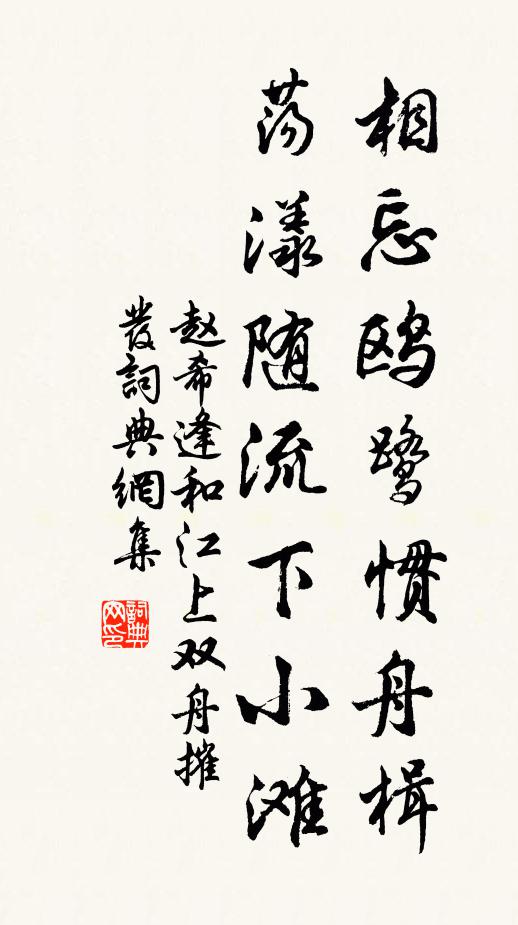 相忘鸥鹭惯舟楫
荡漾随流下小滩
赵希逢和江上双舟摧
发詞典網集
詞典网印